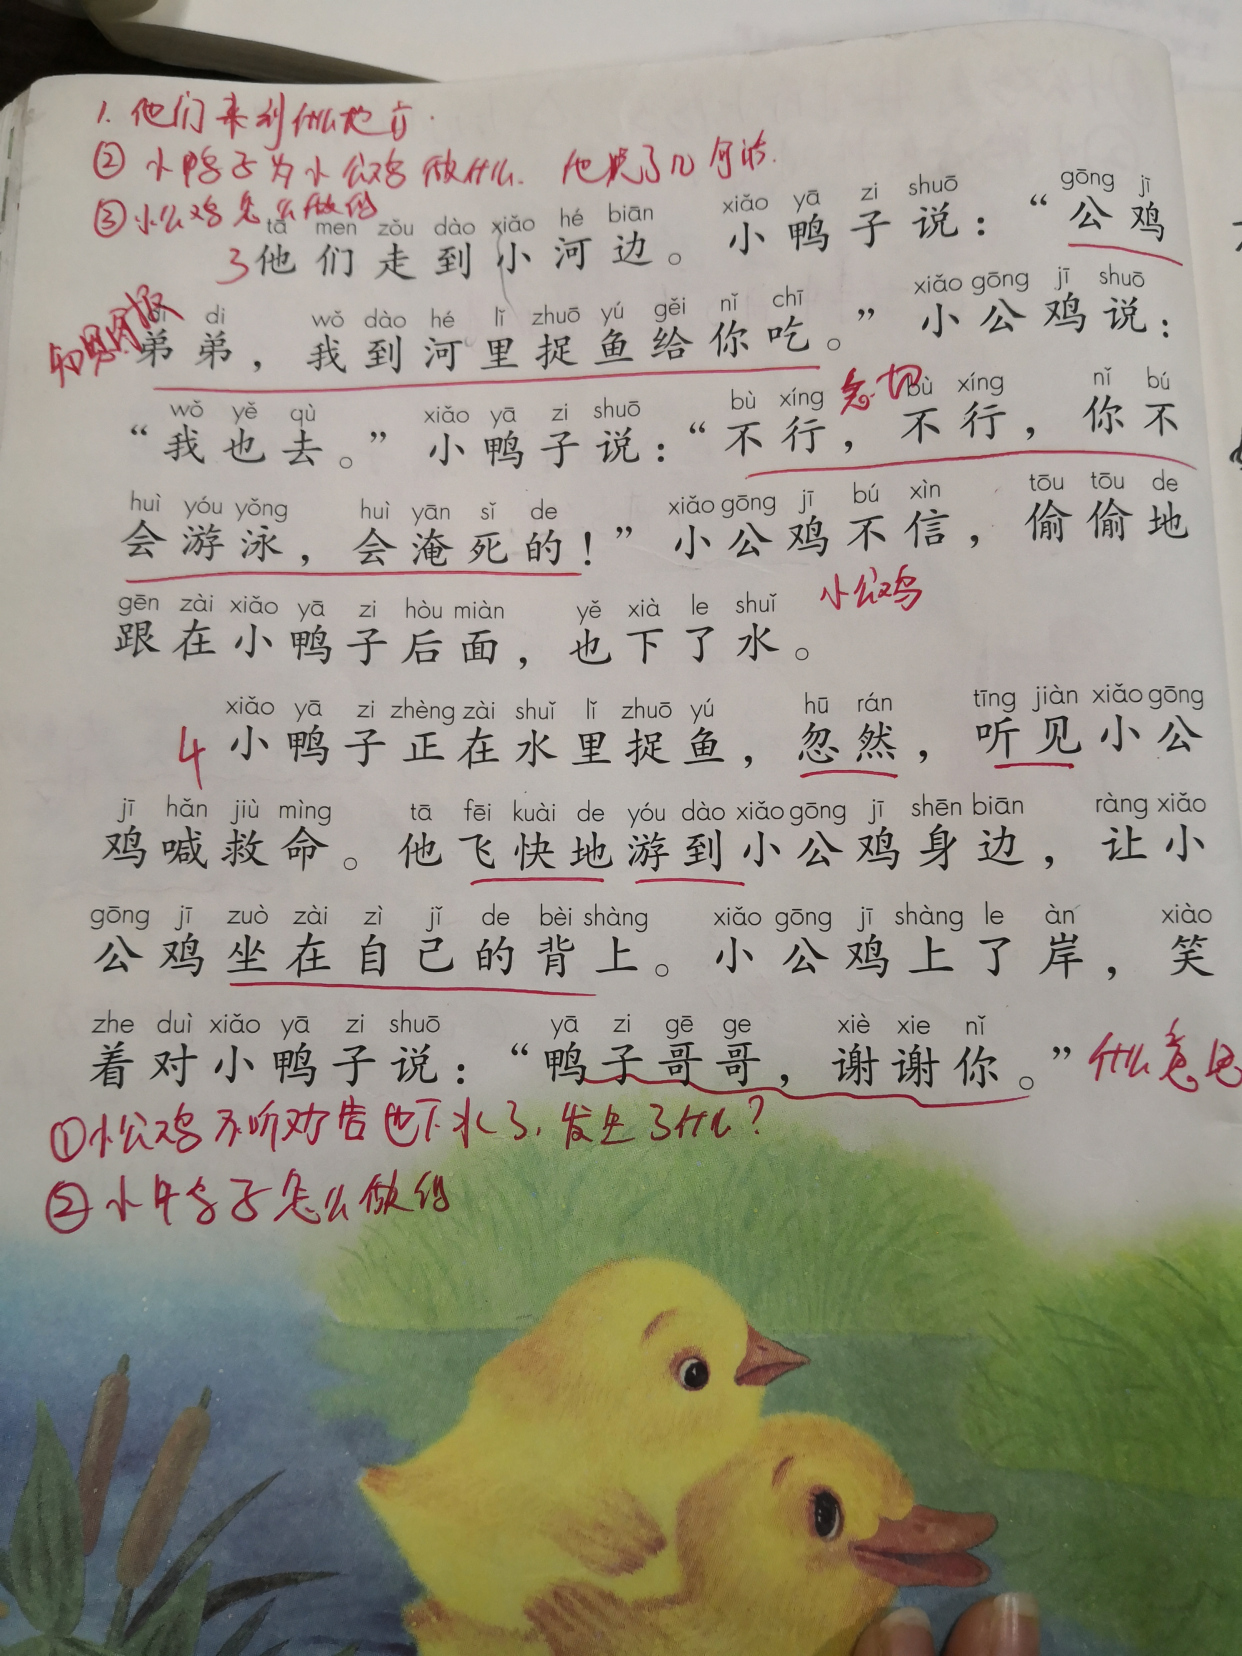 1.他们来到什么地方.
② 小鸭子为小公鸡做什么. 他说了几句话.
③小公鸡怎么做的
tā men zǒu dào xiǎo hé biān xiǎo yā zi shuō gōng jī
3 他们走到小河边。小鸭子说：“公鸡
di di wǒ dào hé lǐ zhuō yú gěi nǐ chī xiǎo gōng jī shuō
弟弟，我到河里捉鱼给你吃。”小公鸡说：
wǒ yě qù xiǎo yā zi shuō bù xíng 急切 bù xíng nǐ bú
“我也去。”小鸭子说：“不行，不行，你不
huì yóu yǒng huì yān sǐ de xiǎo gōng jī bú xìn tōu tōu de
会游泳，会淹死的！”小公鸡不信，偷偷地
小公鸡
gēn zài xiǎo yā zi hòu miàn yě xià le shuǐ
跟在小鸭子后面，也下了水。
xiǎo yā zi zhèng zài shuǐ lǐ zhuō yú hū rán tīng jiàn xiǎo gōng
4 小鸭子正在水里捉鱼，忽然，听见小公
jī hǎn jiù mìng tā fēi kuài de yóu dào xiǎo gōng jī shēn biān ràng xiǎo
鸡喊救命。他飞快地游到小公鸡身边，让小
gōng jī zuò zài zì jǐ de bèi shàng xiǎo gōng jī shàng le àn xiào
公鸡坐在自己的背上。小公鸡上了岸，笑
zhe duì xiǎo yā zi shuō yā zi gē ge xiè xie nǐ
着对小鸭子说：“鸭子哥哥，谢谢你。” 什么意思
①小公鸡不听劝告也下水了，发生了什么？
②小鸭子怎么做的